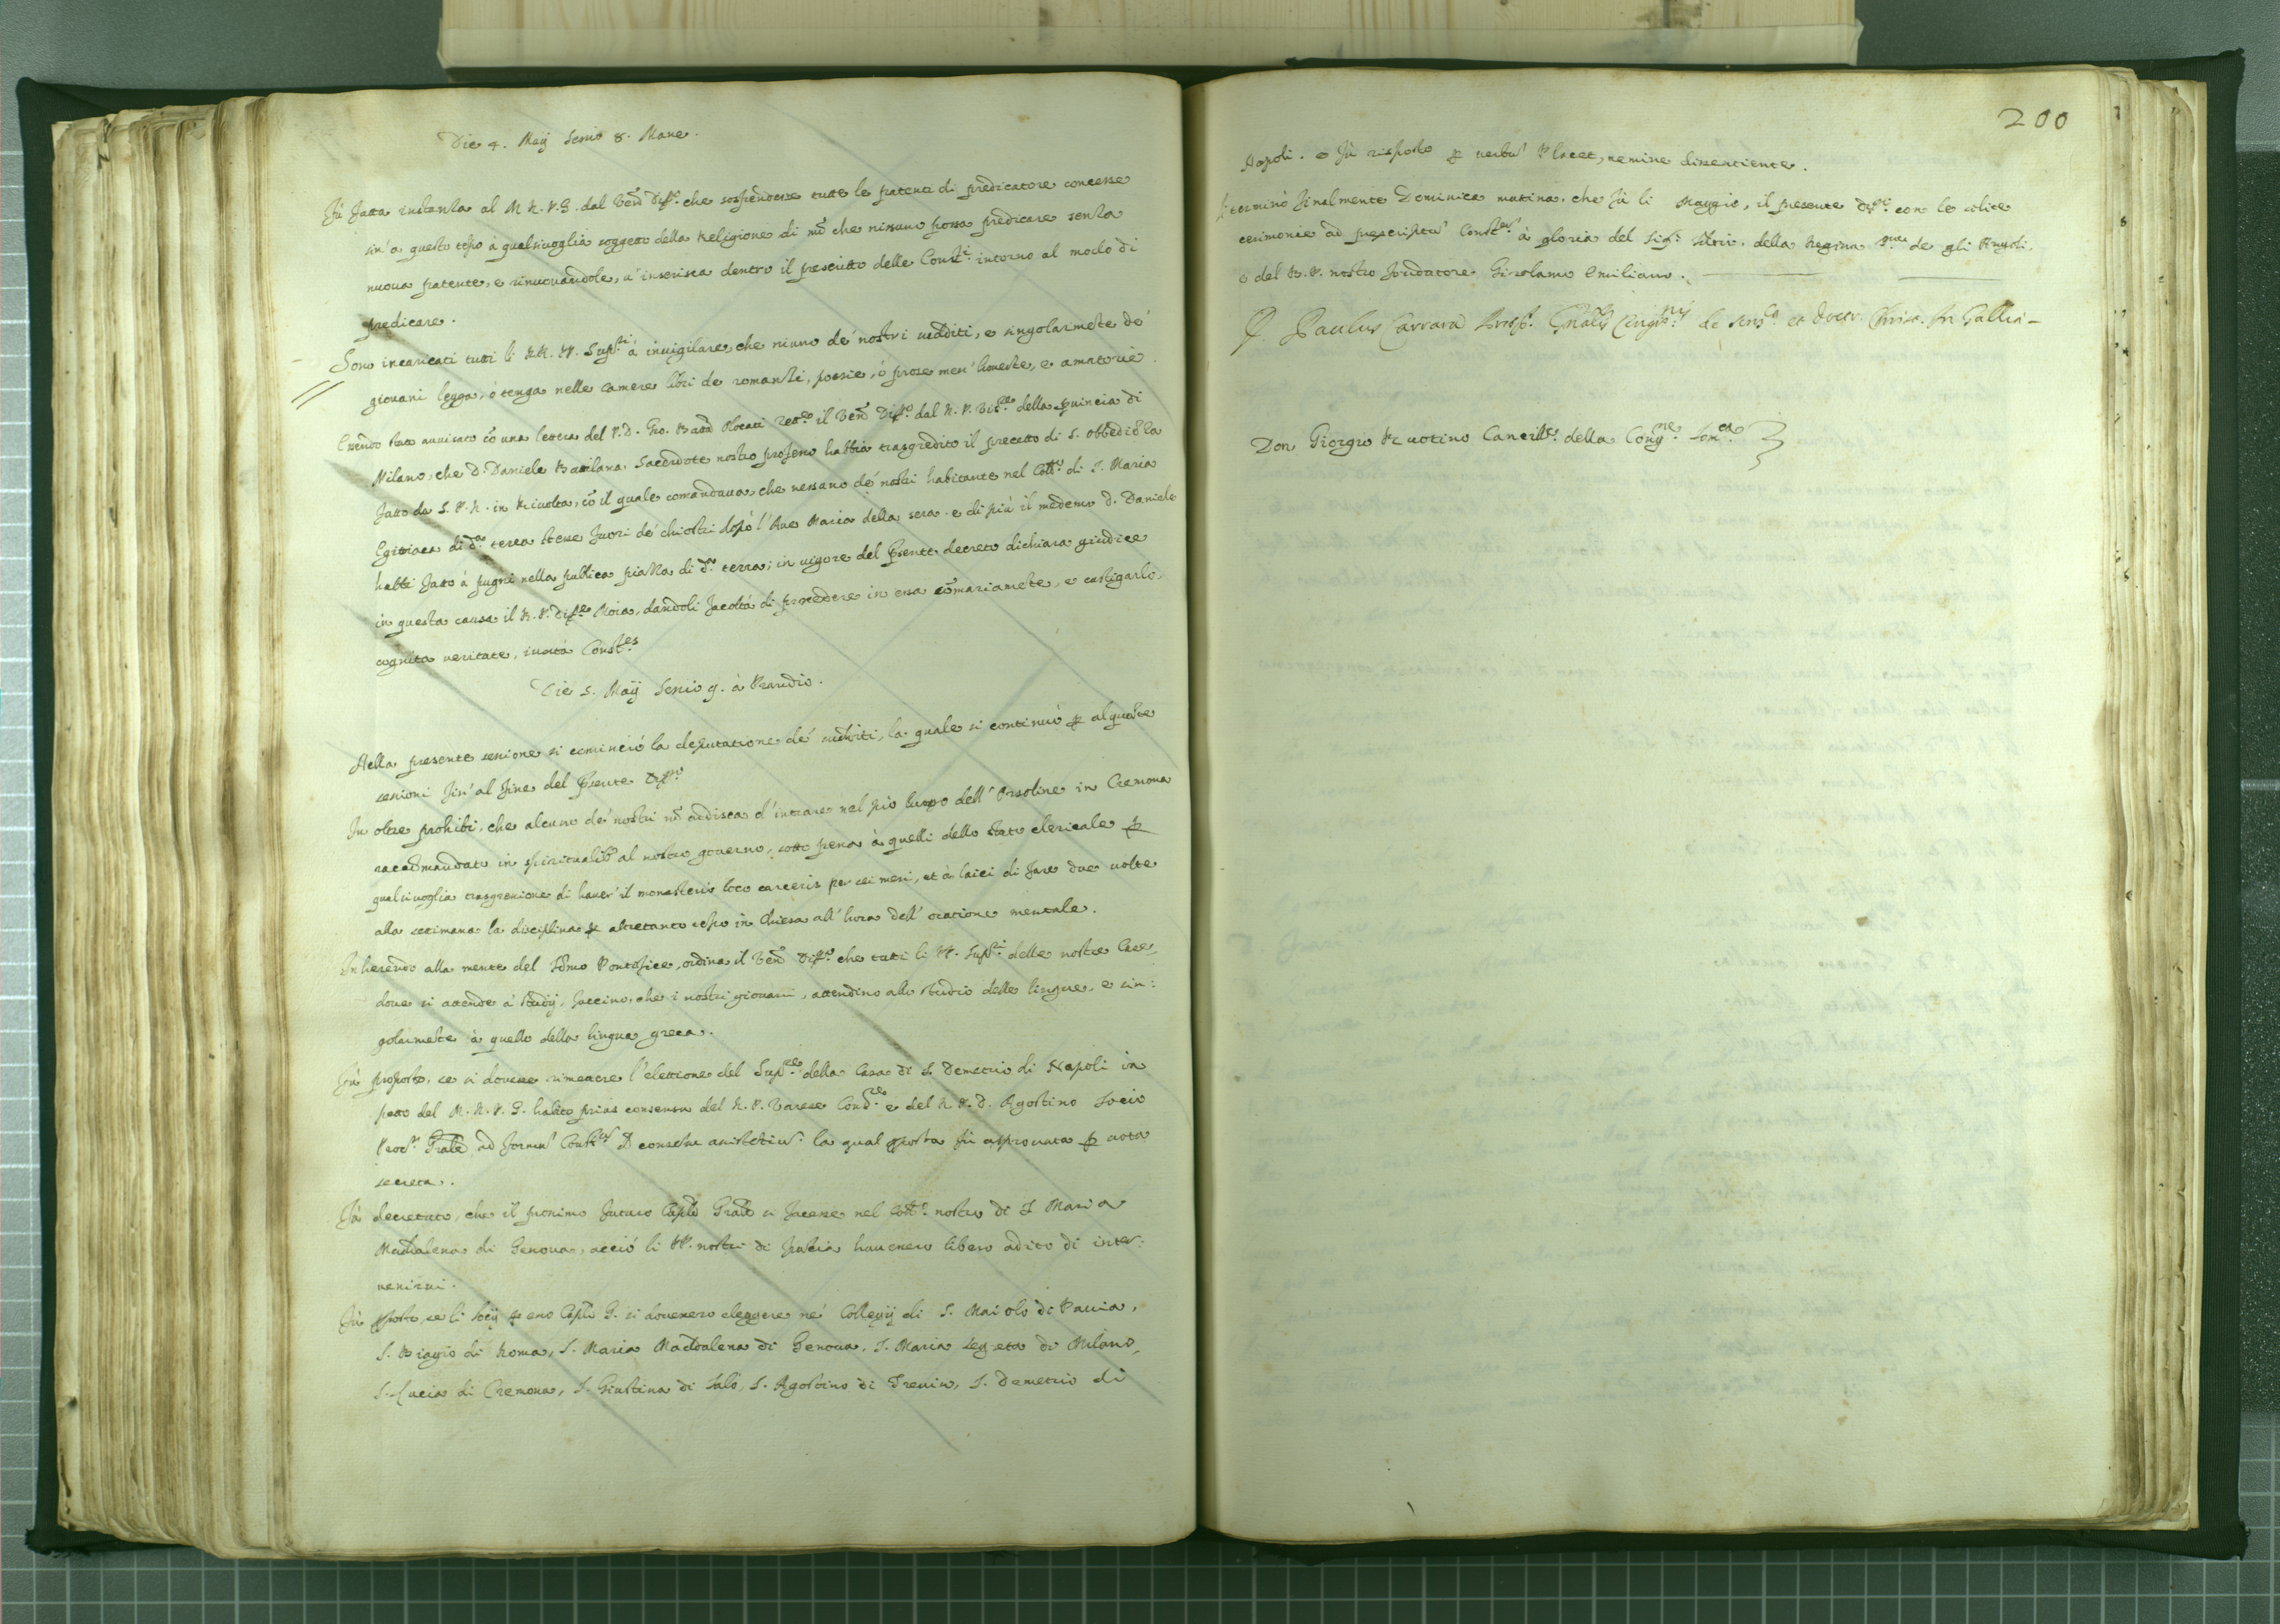 Die 4. Maÿ Sessio 8. Mane.
Fù fatta instanza al M. R. P. G. dal Ven. Diff.º che sospendesse tutte le patenti di predicatore concesse
sin' a questo tẽpo à qualsivoglia soggetto della Religione di mõ che nissuno possa predicare senza
nuova patente, e rinuovandole, u' inserisca dentro il prescritto delle Const.i intorno al modo di
predicare.
Sono incaricati tutti li RR. PP. Sup.ri à invigilare, che niuno de' nostri sudditi, e singolarmẽte de'
giovani legga, ò tenga nelle camere libri de romanzi, poesie, ò prose men' honeste, e amatorie.
Essendo stato avvisato cõ una lettera del P. D. Gio. Batta Rett.e il Ven. Diff.º dal R. P. Vis.re della pvincia di
Milano, che D. Daniele Bavilana Sacerdote nostro professo habbia trasgredito il precetto di S. Obbediẽza
fatto da S. P. R. in Rivolta, cõ il quale comandava, che nessuno de' nostri habitante nel Coll.º di S. Maria
Egittiaca di d.a terra stesse fuori de' chiostri dopò l' Ave Maria della sera. e di più il medemo D. Daniele
habbi fatto à pugni nella publica piazza di d.a terra; in vigore del psente decreto dichiara giudice
in questa causa il R. P. Diff.re Moia, dandoli facoltà di procedere in essa sõmariamẽte, e castigarlo,
cognita veritate, iuxtà Const.es
Die 5. Maÿ Sessio 9. à Prandio.
Nella presente sessione si cominciò la deputatione de' sudditi, la quale si continuò p alquãte
sessioni fin' al fine del psente Diff.ro
In oltre prohibì, che alcuno de' nostri nõ ardisca d' intrare nel pio luogo dell' Orsoline in Cremona
racõmandato in spiritualib. al nostro governo, sotto pena à quelli dello stato clericale p
qualsivoglia trasgressione di haver' il monasterio loco carceris per sei mesi, et à laici di fare due volte
alla settimana la disciplina p altretanto tẽpo in chiesa all' hora dell' oratione mentale.
Inherendo alla mente del Sõmo Pontefice, ordina il Ven. Diff.º che tutti li PP. Sup.ri delle nostre Case,
dove si attende à studÿ, faccino, che i nostri giovani, attendino allo studio delle lingue, e sin:
golarmẽte à quello della lingua greca.
Fù proposto, se si dovesse rimettere l' elettione del Sup.re della Casa di S. Demetrio di Napoli in
petto del M. R. P. G. habito prius consensu del R. P. Varese Cons.re e del R. P. D. Agostino Socio
Proc.r Grale ad formã Const.um la qual pposta fù approvata p vota
secreta.
Fù decretato, che il prossimo futuro Caplo Grale si facesse nel Coll.º nostro di S. Maria
Maddalena di Genova, acciò li PP. nostri di Francia havessero libero adito di inter:
venirvi.
Fù pposto, se li Socÿ p esso Caplo G. si dovessero eleggere ne' Collegÿ di S. Maiolo di Pavia,
S. Biagio di Roma, S. Maria Maddalena di Genova, S. Maria Segreta di Milano,
S. Lucia di Cremona, S. Giustina di Salò, S. Agostino di Trevixo, S. Demetrio di
200
Napoli. e fù risposto p verbũ Placet, nemine dissentiente.
Si terminò finalmente Dominica matina, che fù li Maggio, il presente Diff.ro con le solite
cerimonie ad prescriptũ Const.um à gloria del Sig.r Iddio, della Regina S.ma de gli Angeli,
e del B. P. nostro fondatore Girolamo Emiliano.
D. Paulus Carrara Prep. Gnalis Cong.nis de Som.ca et Doctr. Christ. in Gallia
Don Giorgio Bvotino Cancell.e della Cong.ne Som.ca